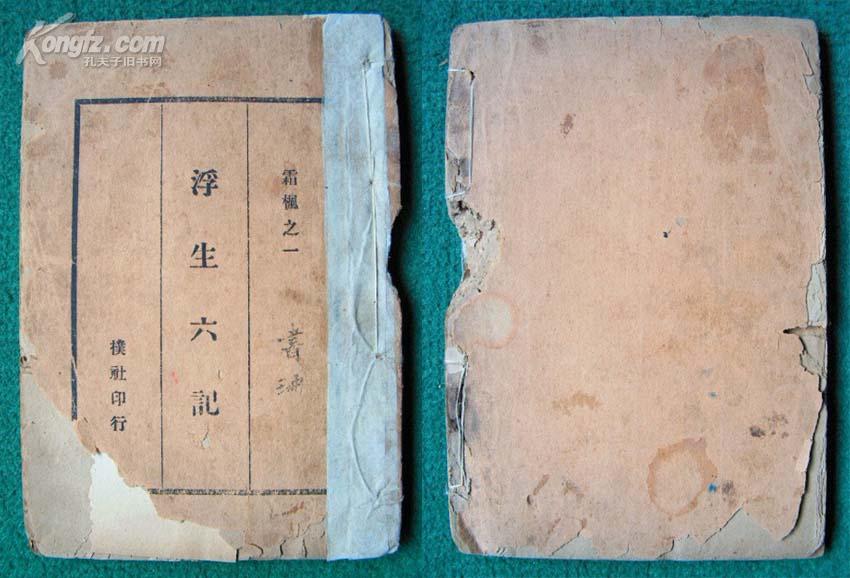 Kongfz.com
孔夫子旧书网
霜楓之一
浮生六記
樸社印行